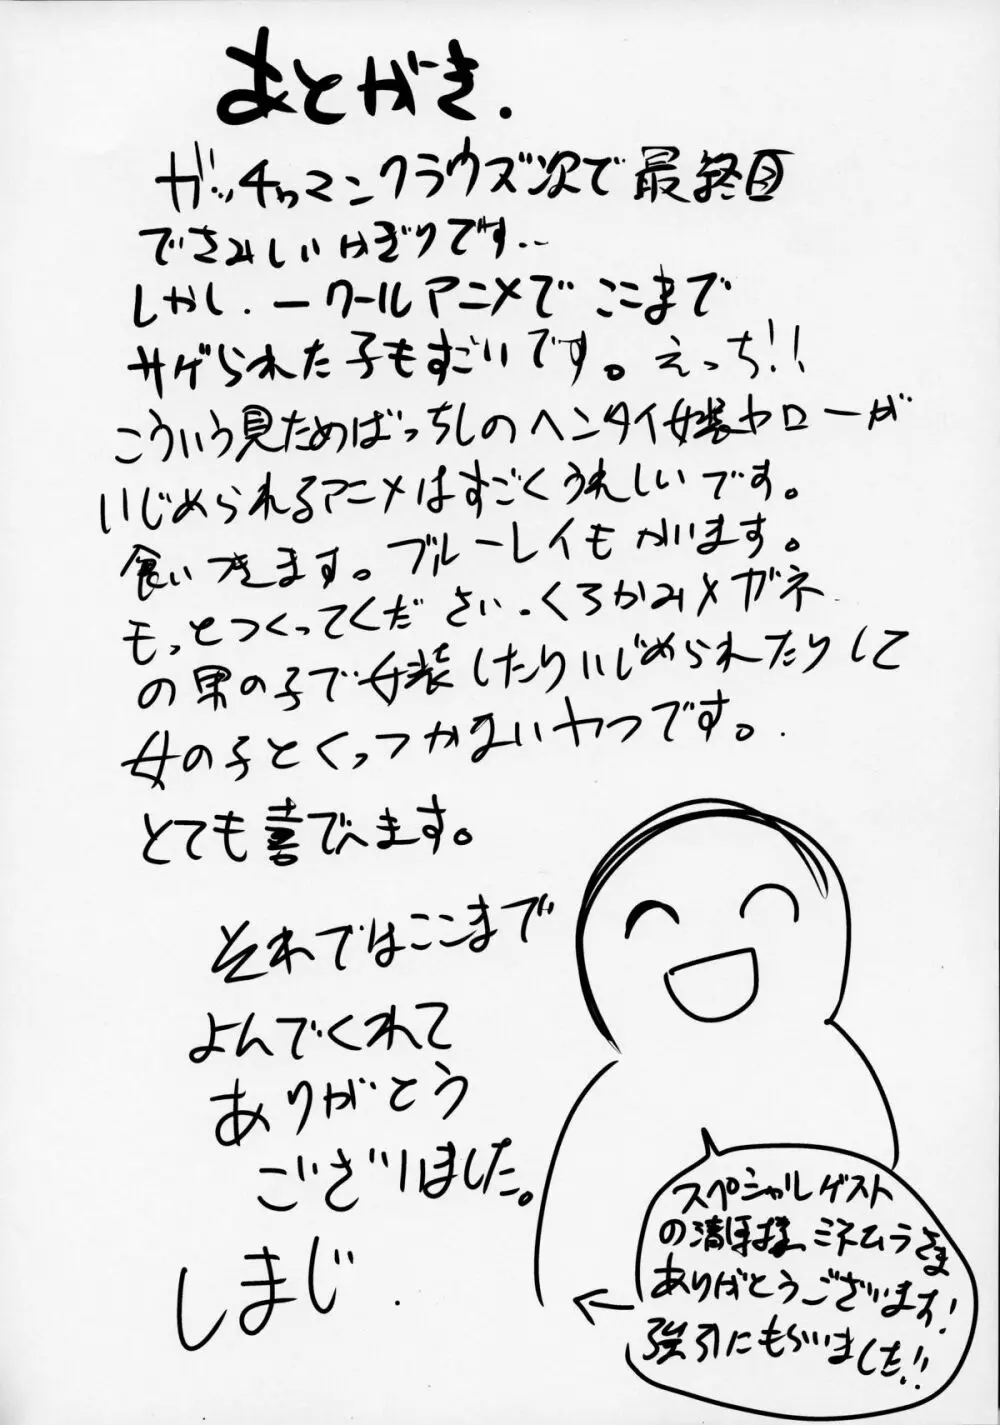 あとがき.
ガッチャマンクラウズ次で最終回
でさみしいかぎりです…
しかし、一クールアニメでここまで
サゲられた子もすごいです。えっち!!
こういう見ためばっちしのヘンタイ女装ヤローが
いじめられるアニメはすごくうれしいです。
食いつきます。ブルーレイもかいます。
もっとつくってください。くろかみメガネ
の男の子で女装したりいじめられたりして
女の子とくっつかないやつです。
とても喜びます。
それではここまで
よんでくれて
ありがとう
ございました。
しまじ.
スペシャルゲスト
の清ほ様、ミネムラさま
ありがとうございます!
強引にもらいました!!